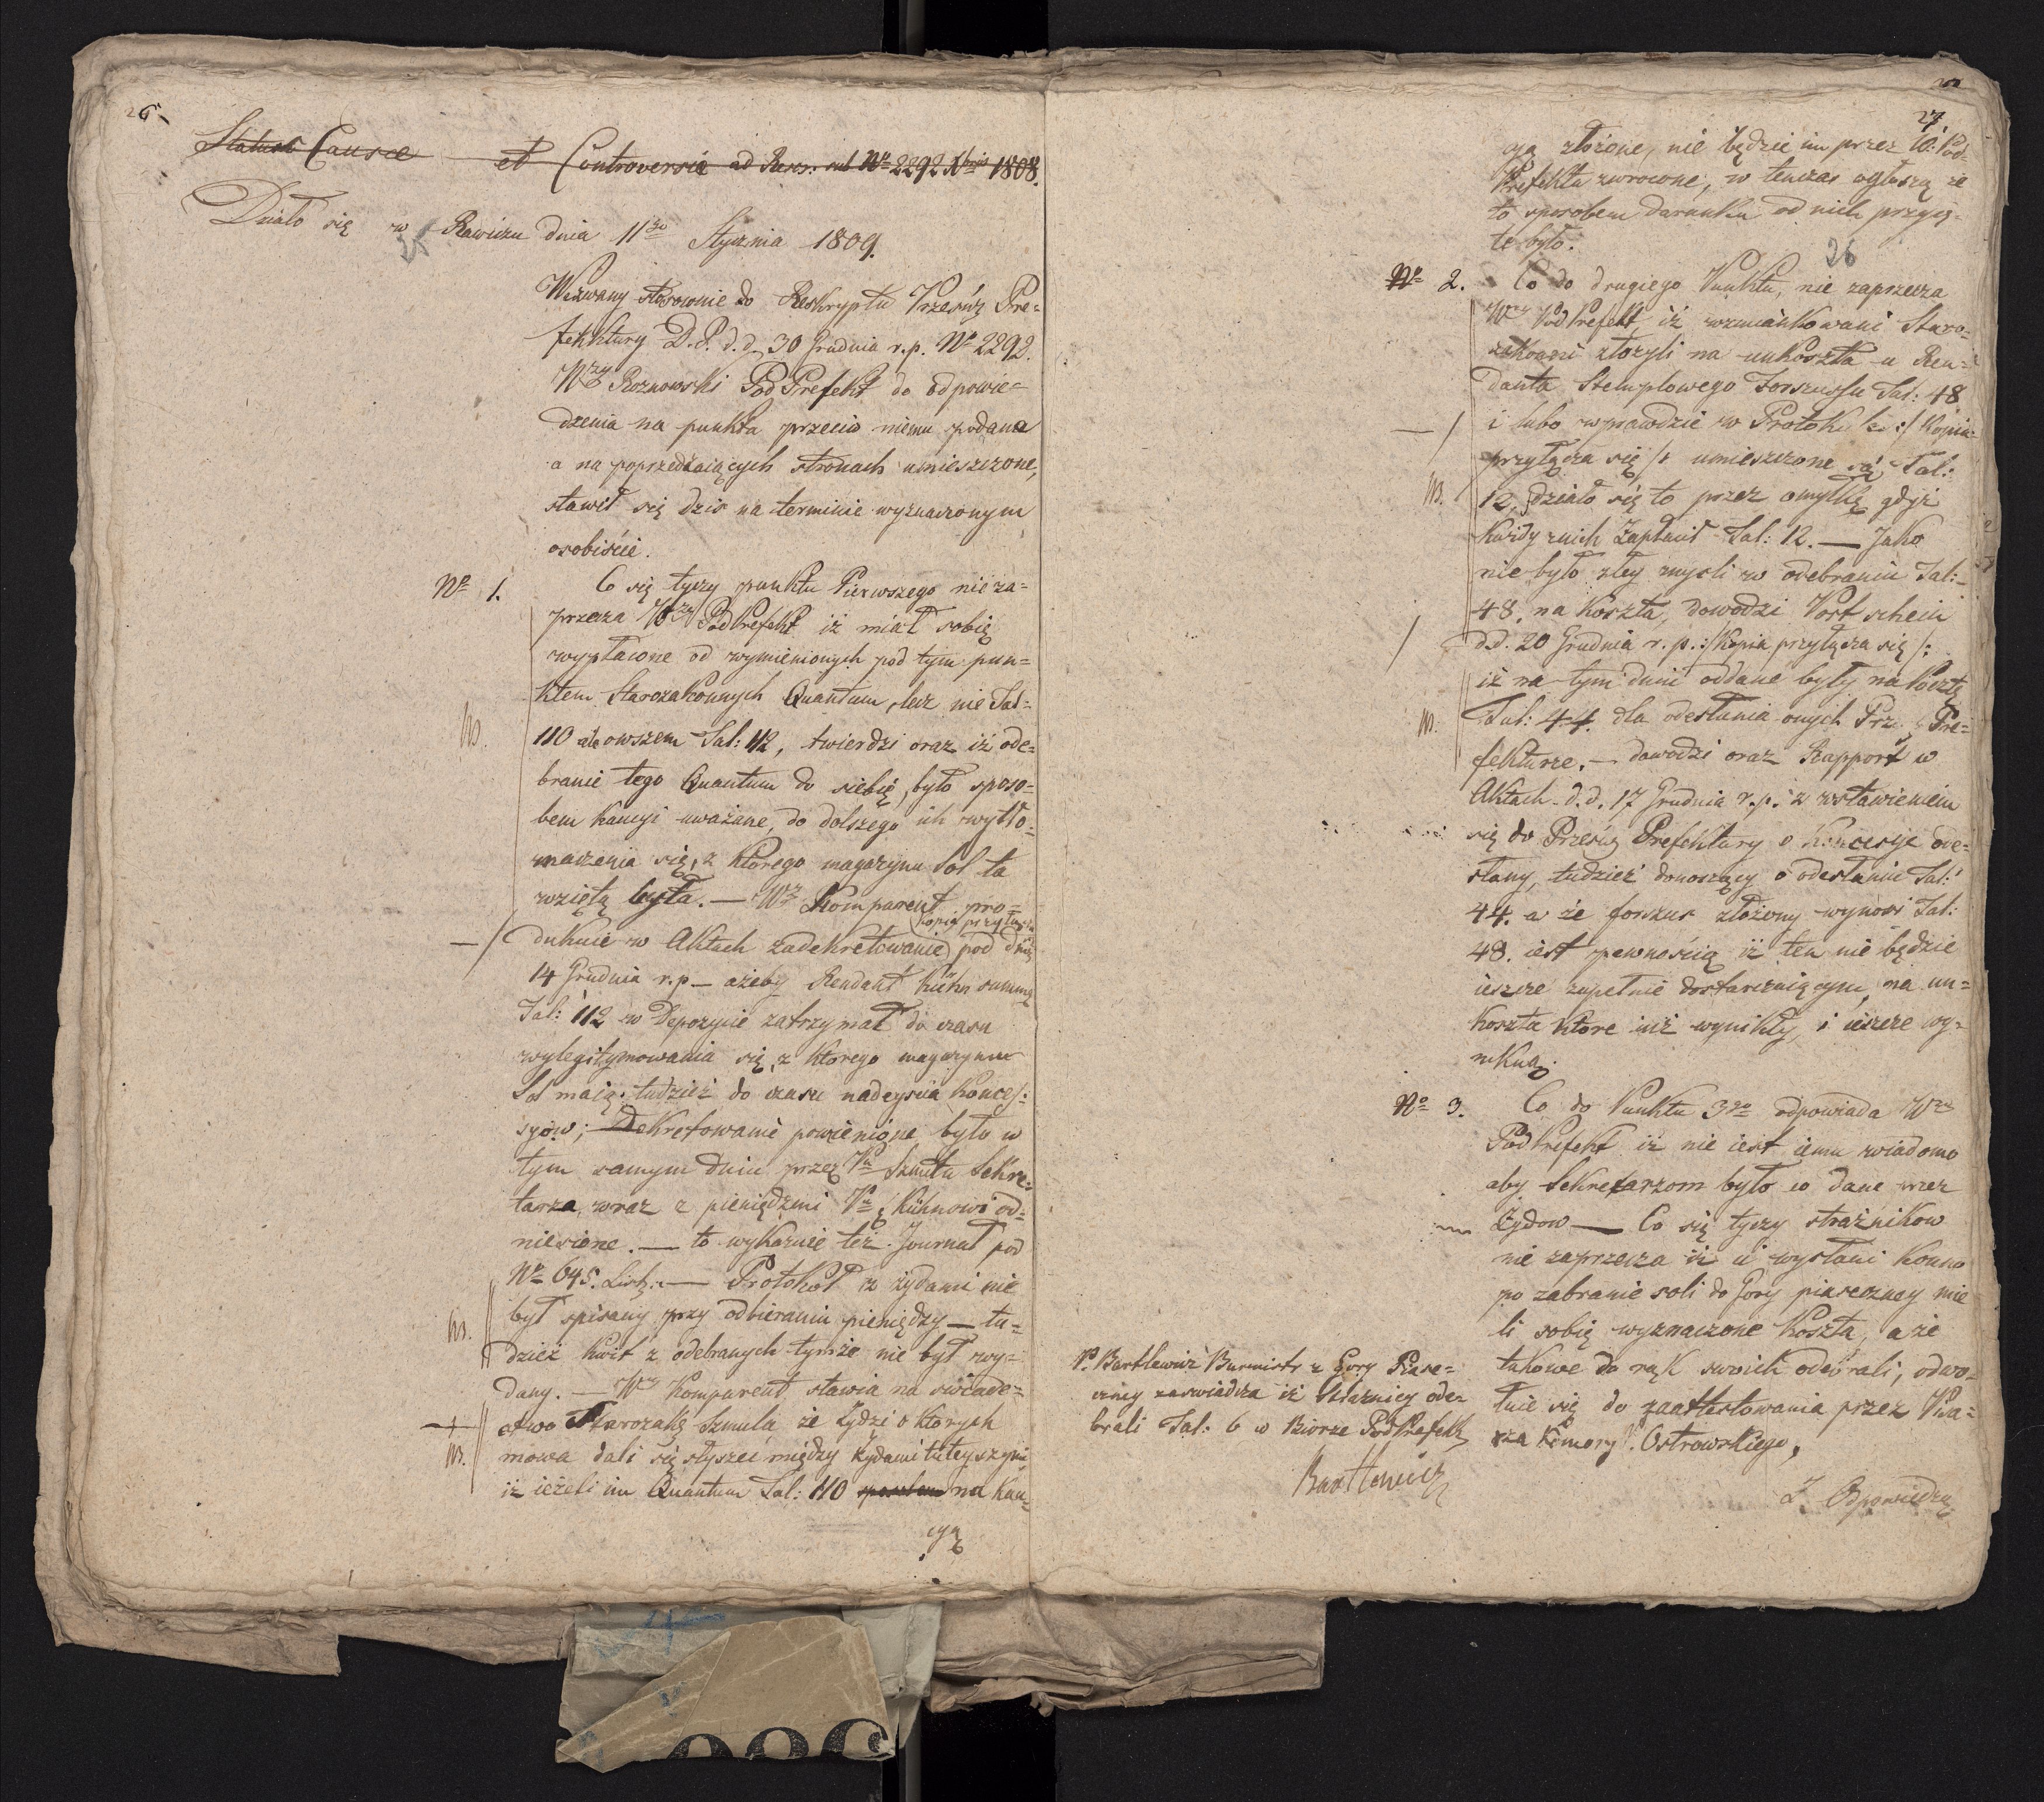 26
Status Causae et Controversia ad Rescr. sub Nro 2292 Xbris 1808.
Działo się w Rawiczu dnia 11go Stycznia 1809.
25
Wezwany stosownie do Reskryptu Prześwę Pre=
fekktury D. P. d. d. 30 Grudnia r. p. Nro 2292.
Wzy Roznowski PodPrefekt do odpowie=
dzenia na punkta przeciw niemu podane
a na poprzedzaiących stronach umieszczone,
stawił się dzis na terminie wyznaczonym
osobiście.
Nro 1.
Co się tyczy punktu Pierwszego nie za=
przecza Wzy PodPrefekt iż miał sobię
wypłacone od wymienionych pod tym pun=
ktem Starozakonnych Quantum, lecz nie Tal=
110 ale owszem Tal: 112, twierdzi oraz iż ode=
branie tego Quantum do siebię, było sposo=
bem kaucyi uważane, do dolszego ich wytło=
maczenia się, z którego magazynu Sol ta
wziętą była. — Wzy Komparent pro=
(kopia przyłącza
dukuie w Aktach zadekretowanie) pod dniē
14 Grudnia r. p — ażeby Rendant Kühn summę
Tal: 112 w Depozycie zatrzymał do czasu
wylegitymowania się, z którego magazynu
Sol maią, tudzież do czasu nadeyścia konce/:
syów; Dekretowanie powienione było w
tym samym dniu przez Pa Szmitu Sekre=
tarza, wraz z pieniędzmi Pu Kühnowi od=
niesione. — to wykazuie też Journal pod
Nro 645. — Protokoł z żydami nie
był spisany przy odbieraniu pieniędzy — tu=
dzież kwit z odebranych tymże nie był wy=
dany. — Wzy Komparent stawia na świade=
ctwo Starozakę Szmula że Żydzi o których
mowa dali się słyszeć między żydami tuteyszymi
iż ieżeli im Quantum Tal: 110 na kau=
cyą
27.
cyą złożone, nie będzie im przez W: Pod=
Prefekta zwrocone, w tenczas ogłoszą że
to sposobem darunku od nich przyię=
te było.
26
Nro 2.
Co do drugiego Punktu, nie zaprzecza
Wzy PodPrefekt, iż wzmiankowani Staro=
zakonni złożyli na unkoszta u Ren=
danta Stemplowego Forszussu Tal: 48
i lubo wprawdzie w Protokule :/ kopia
przyłącza się /: umieszczone są Tal:
12, działo się to przez omyłkę gdyż
każdy z nich zapłacił Tal: 12. — Jako
nie było złey mysli w odebraniu Tal:
48. na koszta, dowodzi Postschein
d. d. 20 Grudnia r. p. :/ kopia przyłącza się /:
iż na tym dniu oddane były na Pocztę
Tal: 44. dla odesłania onych Prz. Pre=
fekturze. — dowodzi oraz Rapport w
Aktach d. d. 17 Grudnia r. p. z wstawieniem
się do Prześwę Prefektury o koncesye ode=
słany, tudzież donoszący o odesłaniu Tal:
44. a że forszus złożony wynosi Tal:
48. iest pewnością iż ten nie będzie
ieszcze zupełnie dostarczaiącym, na un=
koszta które iuż wynikły, i ieszcze wy=
nikną.
No 3.
Co do Punktu 3go odpowiada Wzy
PodPrefekt iż nie iest iemu wiadomo
aby Sekretarzom było co dane przez
Żydow — Co się tyczy strażnikow
nie zaprzecza iż ci wysłani konno
po zabranie soli do Gory piaseczney mie
li sobię wyznaczone koszta, a że
takowe do rąk swoich odebrali, odwo=
łuie się do zaattestowania przez Pisa=
rza Komory P. Ostrowskiego,
P. Bartlewicz Burmistr z Gory Piase=
czney zaswiadcza iż Strażnicy ode=
brali Tal: 6 w Biorze PodPrefekt
Bartlewicz
Z Odpowiedzią